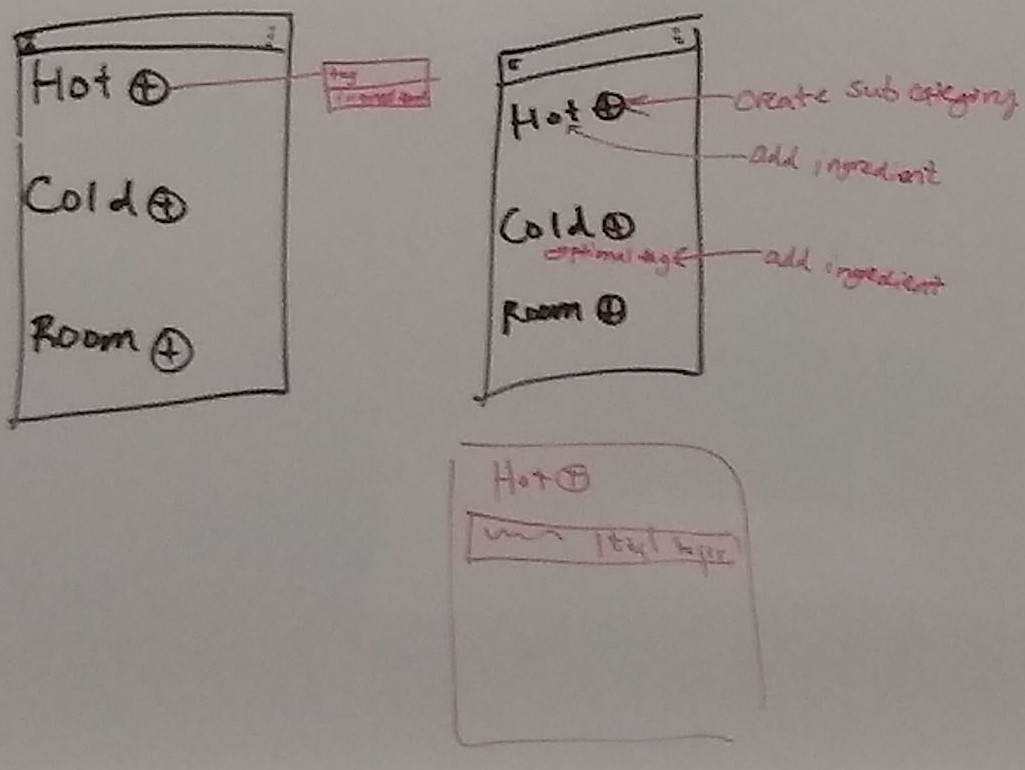 Hot +
tag
ingredient
Cold +
Room +
Hot +
create sub category
add ingredient
Cold +
add ingredient
Room +
Hot +